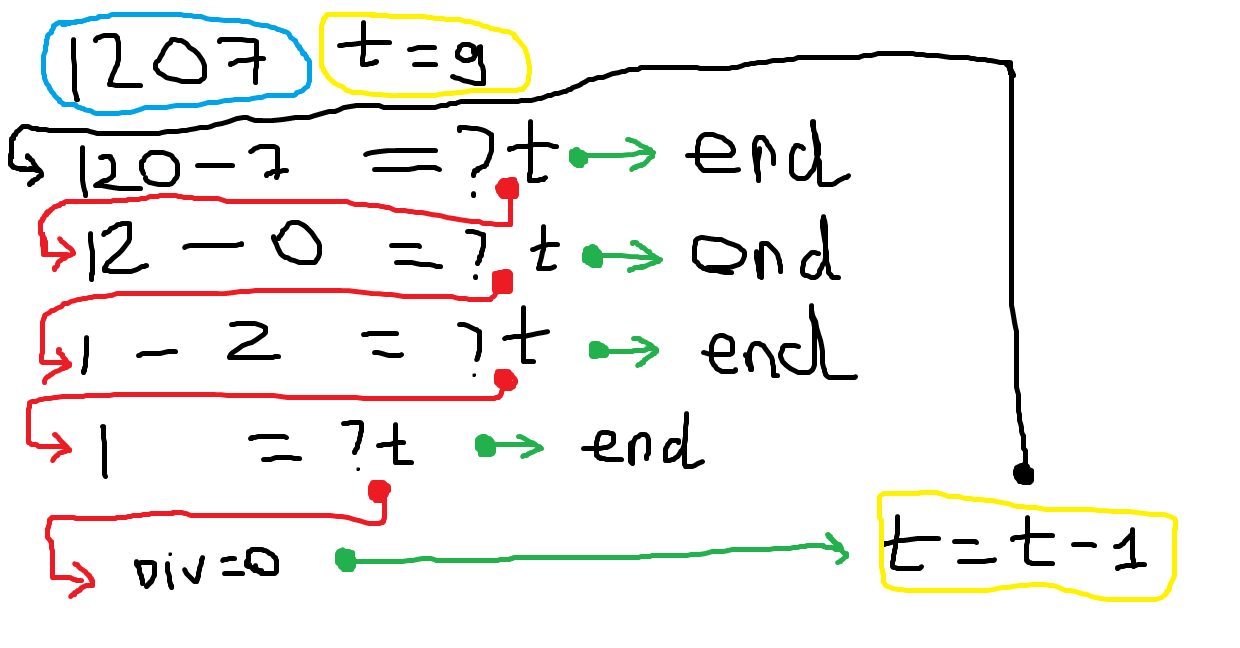 1207 t=9
120-7 =?t end
12-0 =?t end
1-2 =?t end
1 =?t end
DIV=0 t=t-1